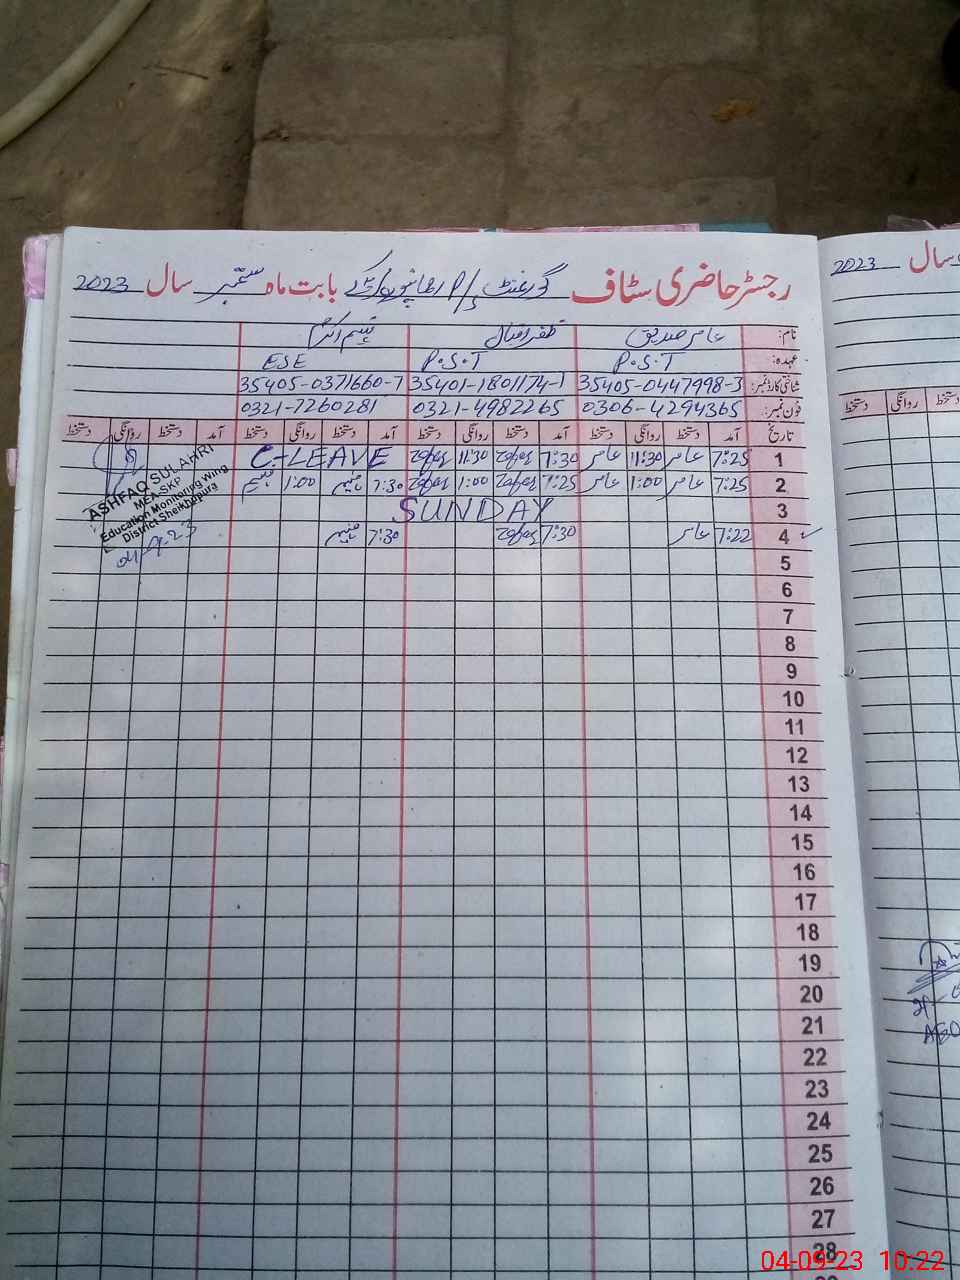 رجسٹر حاضری سٹاف گورنمنٹ P/S بابت ماہ ستمبر سال 2023
نام: عامر صدیق ظفر اقبال
عہدہ: P.S.T P.S.T ESE
شناختی کارڈ نمبر: 35405-0447998-3 35401-1801174-1 35405-0371660-7
فون نمبر: 0306-4294365 0321-4982265 0321-7260281
تاریخ آمد دستخط روانگی دستخط آمد دستخط روانگی دستخط آمد دستخط روانگی دستخط آمد دستخط روانگی دستخط
1 7:25 عامر 11:30 عامر 7:30 Zafar 11:30 Zafar C-LEAVE
2 7:25 عامر 1:00 عامر 7:25 Zafar 1:00 Zafar 7:30 1:00
3 SUNDAY
4 7:22 عامر 7:30 Zafar 7:30
5
6
7
8
9
10
11
12
13
14
15
16
17
18
19
20
21
22
23
24
25
26
27
28
ASHFAQ SULAHRI
MEA-SKP
Education Monitoring Wing
District Sheikhupura
04-9-23
سال 2023
دستخط روانگی
04-09-23 10:22